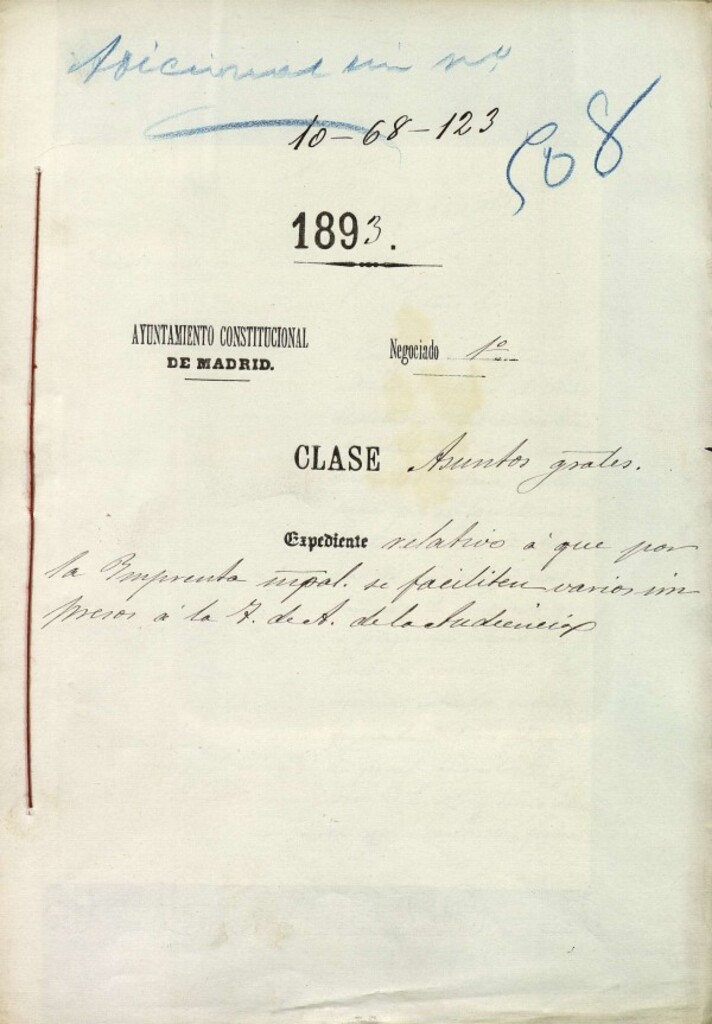 Adicional sin nº
10-68-123
508
1893.
AYUNTAMIENTO CONSTITUCIONAL
DE MADRID.
Negociado 1º
CLASE Asuntos grales.
Expediente relativo á que por
la Imprenta mpal. se faciliten varios im
presos á la T. de A. de la Audiencia